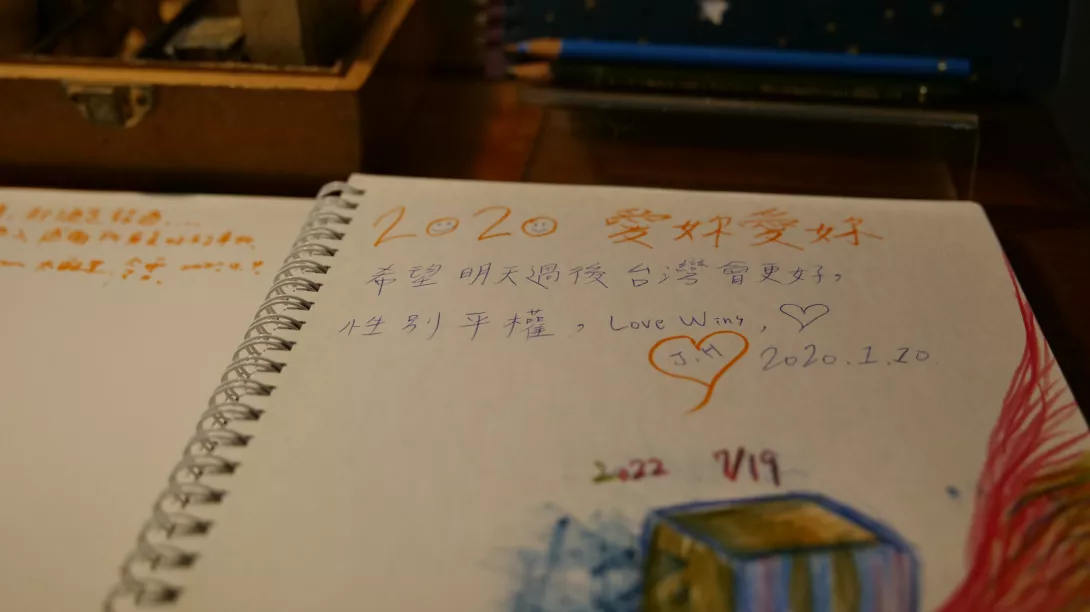 2020 愛妳愛妳
希望明天過後台灣會更好,
性別平權,Love Wins,
J.H 2020.1.10.
2022 7/19